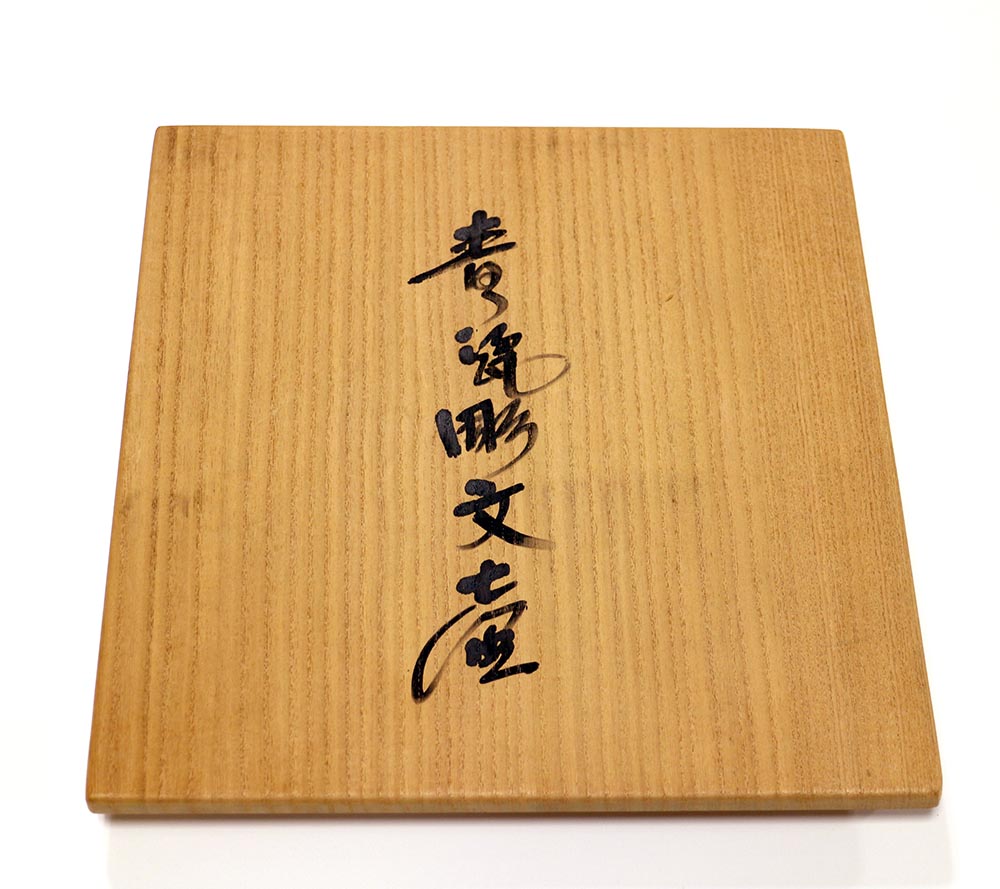 青瓷彫文壷